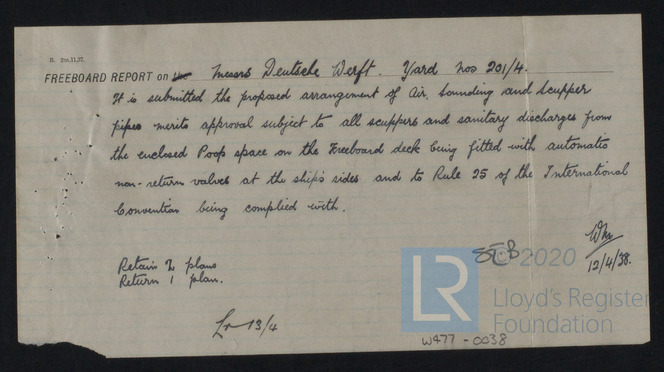 B. 2m.11.37.
FREEBOARD REPORT on the Messrs Deutsche Werft. Yard Nos 201/4.
It is submitted the proposed arrangement of Air, Sounding and Scupper
pipes merits approval subject to all scuppers and sanitary discharges from
the enclosed Poop space on the Freeboard deck being fitted with automatic
non-return valves at the ship's sides and to Rule 25 of the International
Convention being complied with.
Retain 2 plans
Return 1 plan.
Lr 13/4
12/4/38.
© 2020
LR
Lloyd's Register
Foundation
W477 - 0038